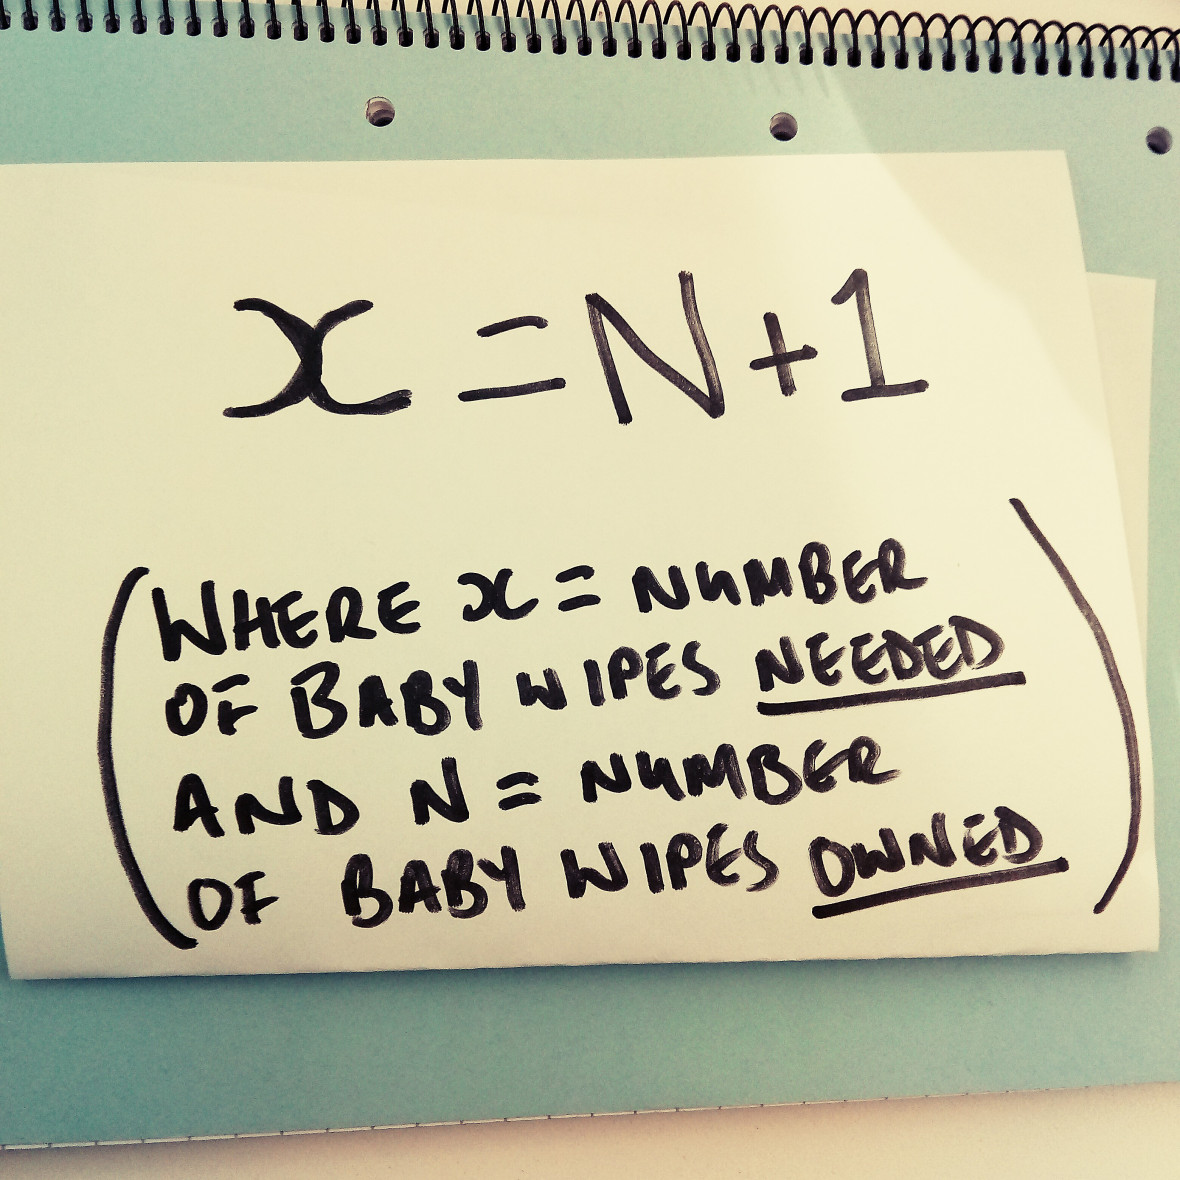 x = N + 1
(WHERE x = NUMBER
OF BABY WIPES NEEDED
AND N = NUMBER
OF BABY WIPES OWNED)